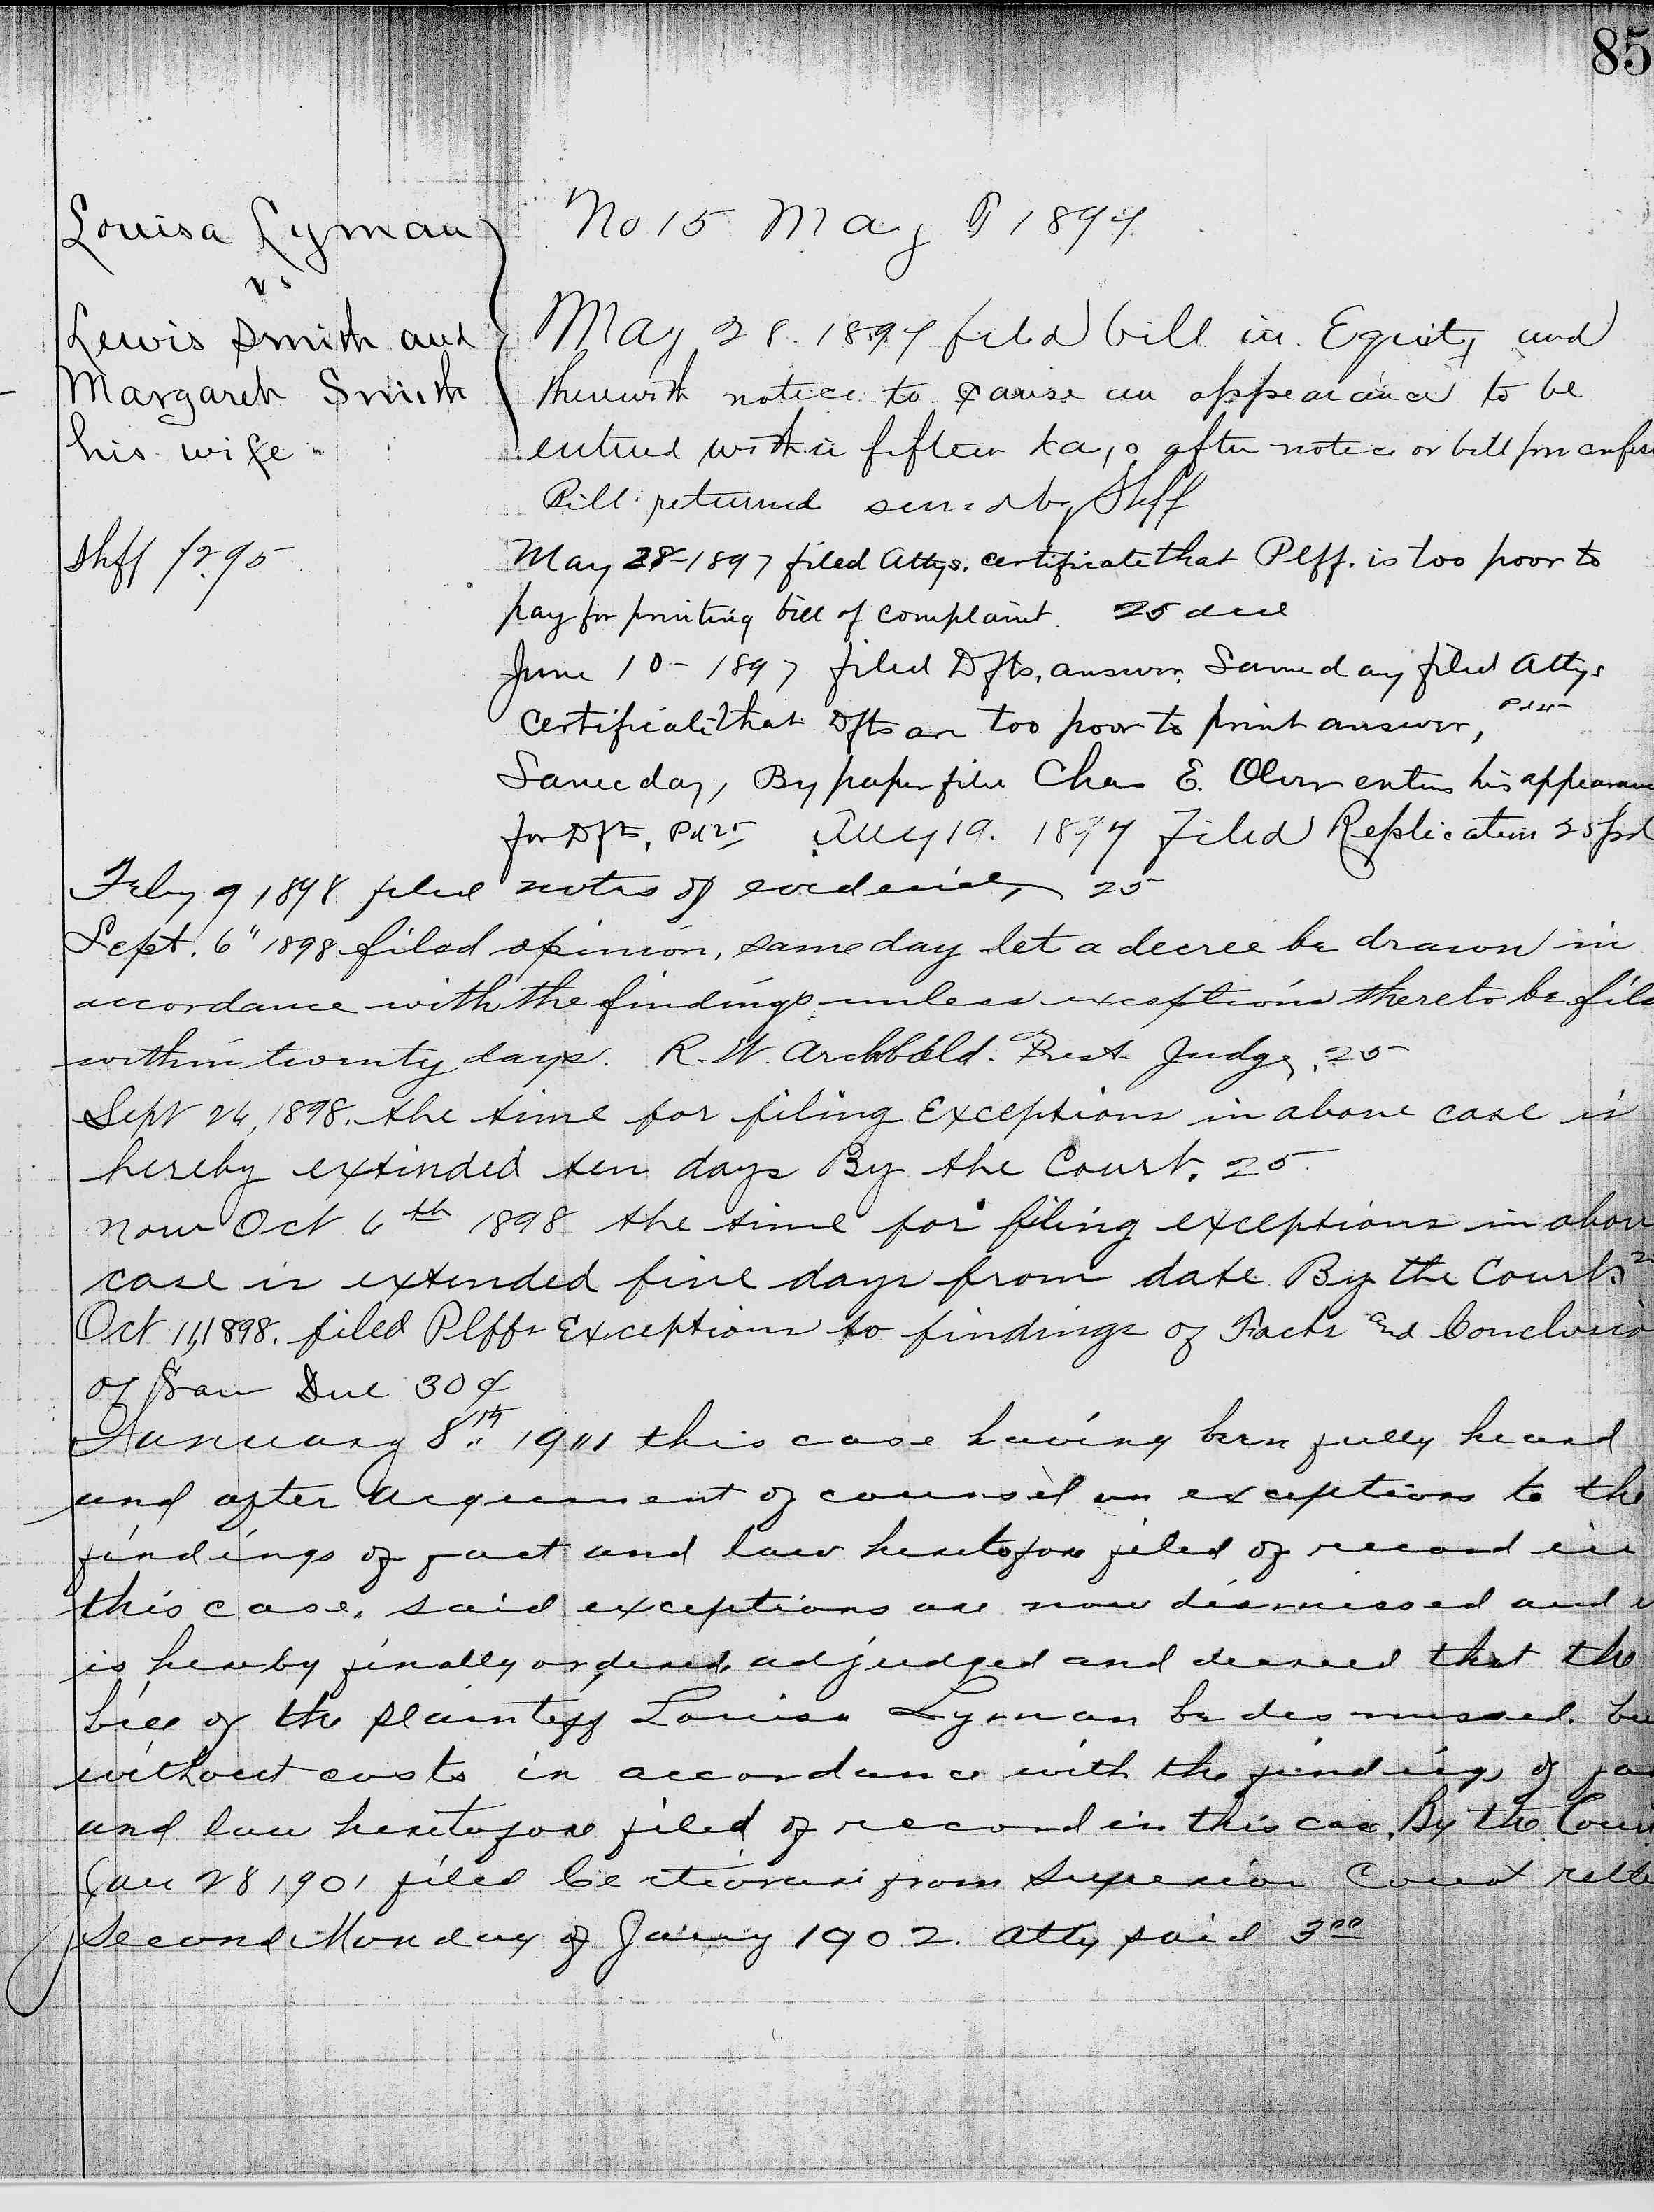 85
Louisa Lyman
vs
Lewis Smith and
Margaret Smith
his wife
Shff 1295
No 15 May T 1897
May 28 1897 filed bill in Equity and
therewith notice to cause an appearance to be
entered within fifteen days after notice or bill pro confess
Bill returned served by Shff
May 28-1897 filed Attys. certificate that Plff. is too poor to
pay for printing bill of complaint 25 due
June 10-1897 filed Dfts. answer. Same day filed Attys
Certificate that Dfts are too poor to print answer,
Same day, By paper filed Chas E. Olver enters his appearance
for Dfts, Pd 25 July 19. 1897 Filed Replication 25 pd
Feby 9 1898 filed notes of evidence, 25
Sept. 6" 1898 filed opinion, same day let a decree be drawn in
accordance with the findings unless exceptions thereto be file
within twenty days. R. W. Archbald. Prest Judge. 25
Sept 24, 1898. the time for filing Exceptions in above case is
hereby extinded ten days By the Court. 25
now Oct 6th 1898 the time for filing exceptions in abov
case is extended five days from date By the Court.
Oct 11, 1898. filed Plffs Exceptions to findings of Facts and Conclusio
of Law Due 30¢
January 8th 1901 this case having been fully heard
and after argument of counsel on exceptions to the
findings of fact and law heretofore filed of record in
this case, said exceptions are now dismissed and
is hereby finally ordered, adjudged and decreed that the
bill of the plaintiff Louisa Lyman be dismissed. bu
without costs in accordance with the findings of fa
and law heretofore filed of record in this case, By the Court
Jan 28 1901 filed Certiorari from Superior Court
Second Monday of Jany 1902. Atty paid 3 00